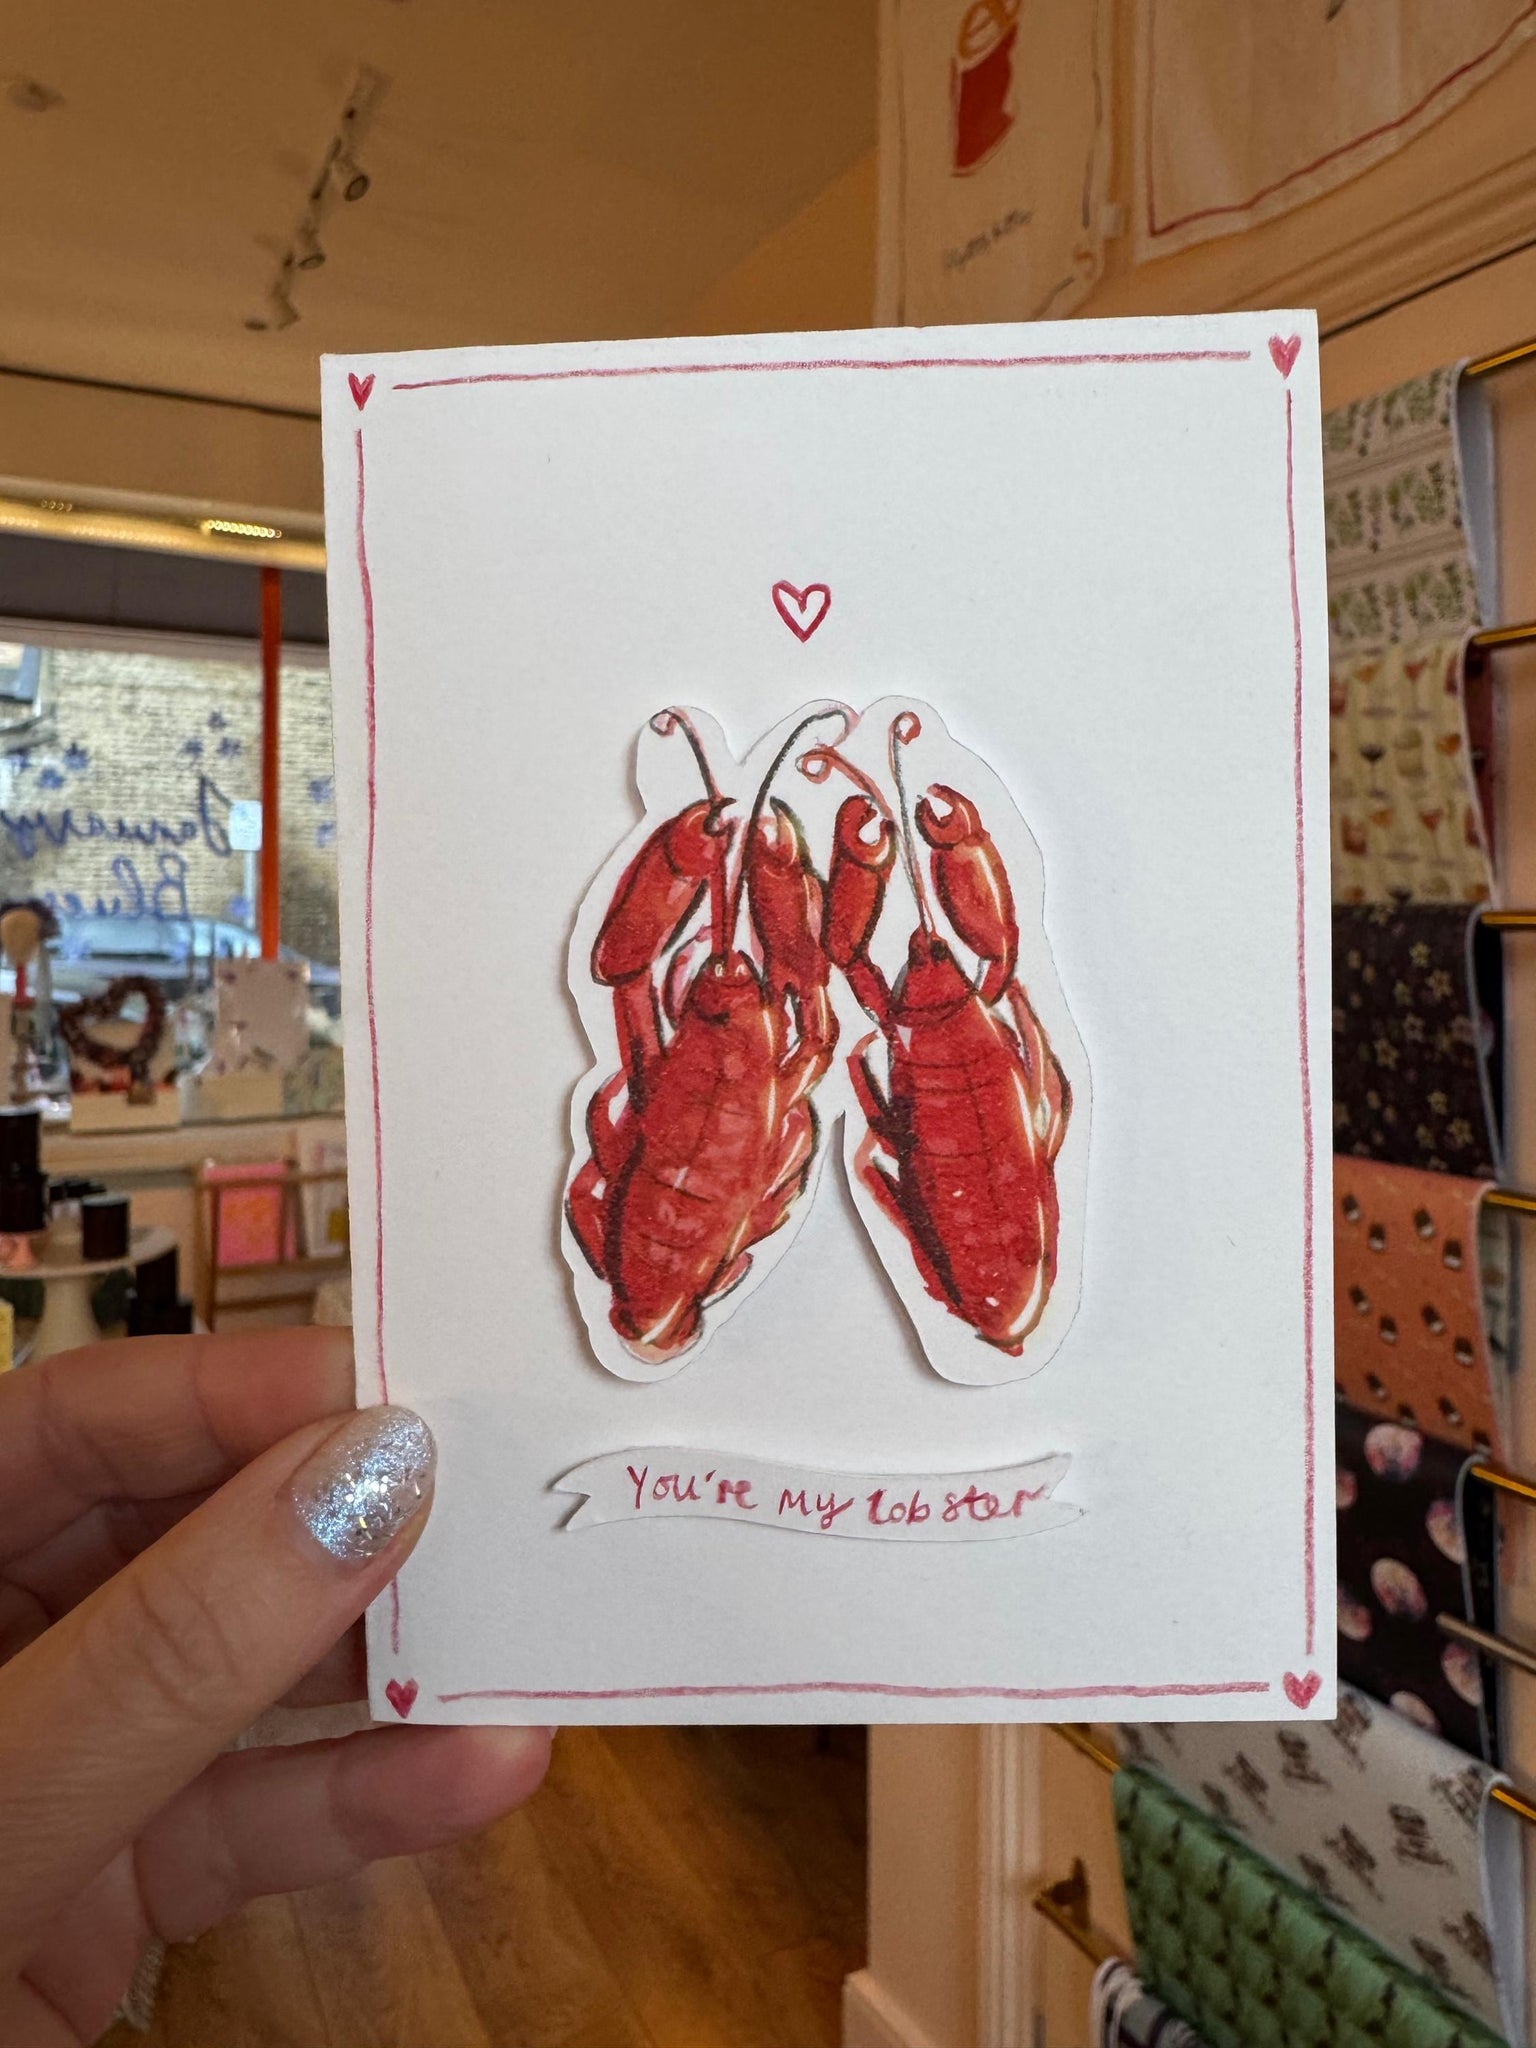 You're my lobster
January
Blues